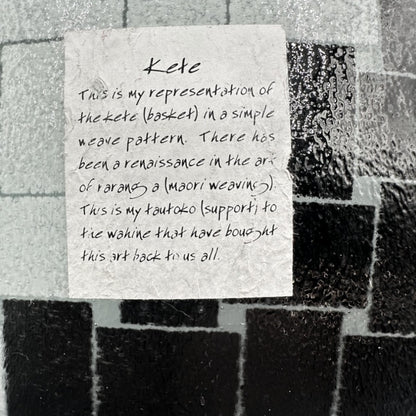 Kete
This is my representation of
the kete (basket) in a simple
weave pattern. There has
been a renaissance in the art
of rarang a (maori weaving).
This is my tautoko (support) to
the wahine that have bought
this art back to us all.